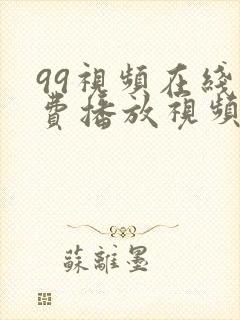 99視頻在綫
費播放視頻
蘇離墨